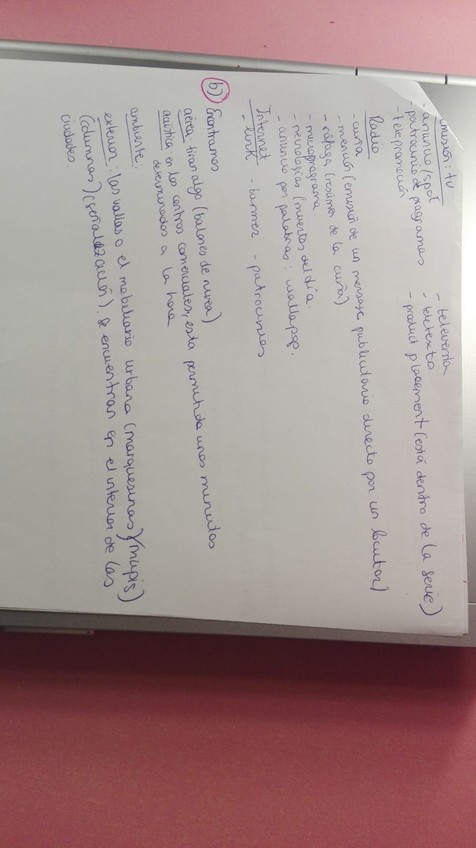 emisión: tv
- anuncio/spot - televenta
- patrocinio de programas - teletexto
- telepromoción - product placement (está dentro de la serie)
Radio
- cuña
- mención (emisión de un mensaje publicitario directo por un locutor)
- ráfaga (resumen de la cuña)
- microprograma
- necrologías (muertos del día.
- anuncio por palabras: wallapop.
Internet
- link - banner - patrocinios
b) Encontramos
aérea tiran algo (balones de nivea)
acústica en los centros comerciales, esta permitida unos minutos
determinados a la hora
ambiente:
exterior: las vallas o el mobiliario urbano (marquesinas) (mupis)
(columnas) (señalización). Se encuentran en el interior de las
ciudades.